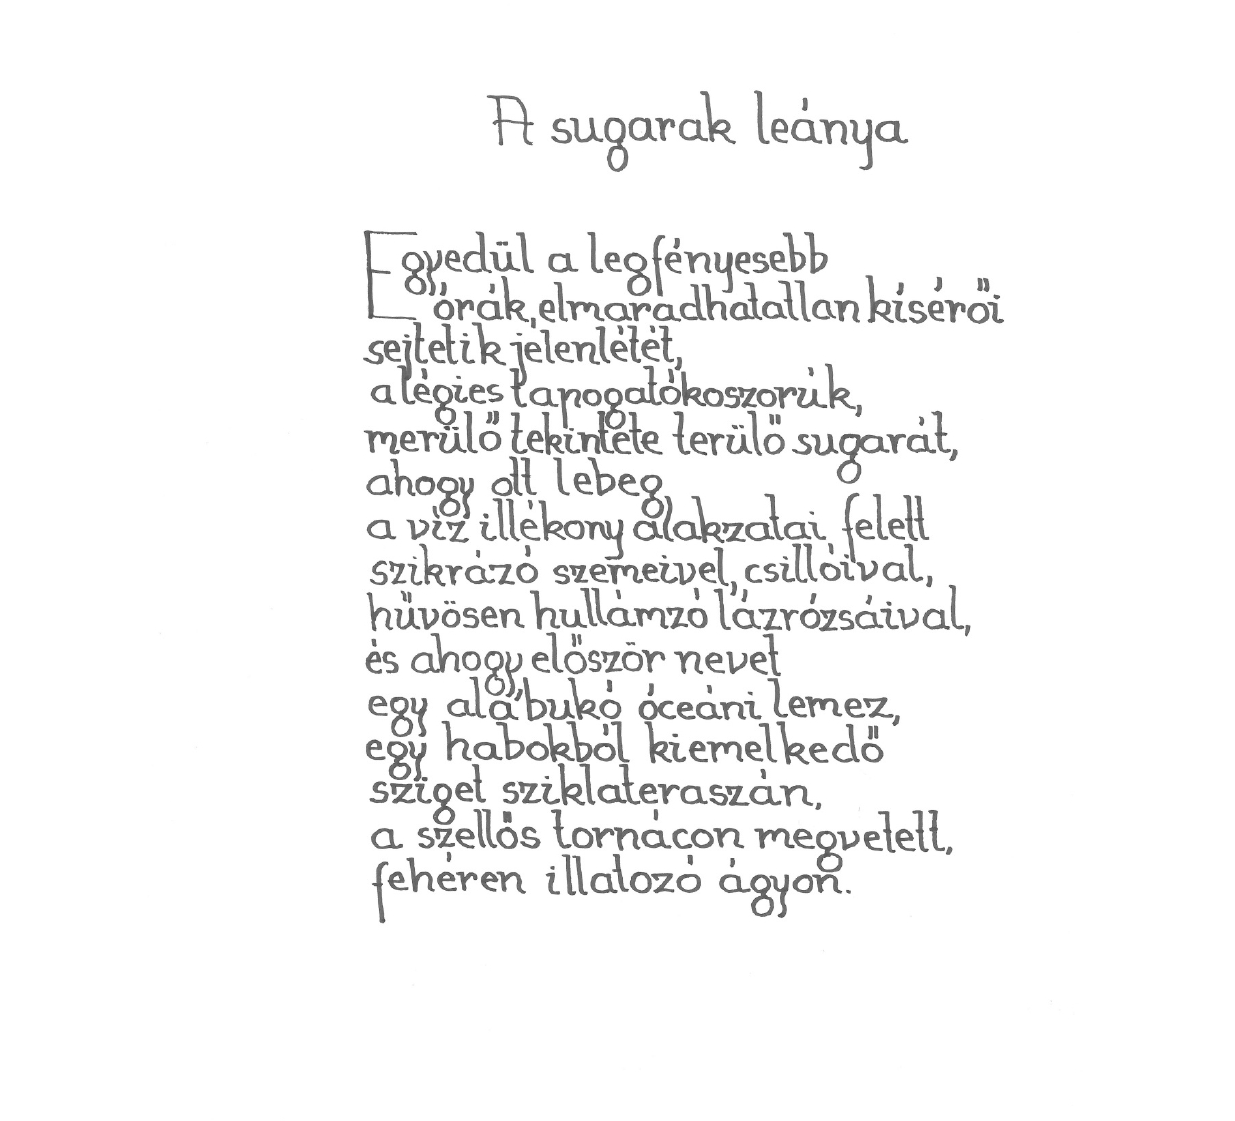 A sugarak leánya
Egyedül a legfényesebb
órák, elmaradhatatlan kísérői
sejtetik jelenlétét,
a légies tapogatókoszorúk,
merülő tekintete terülő sugarát,
ahogy ott lebeg
a víz illékony alakzatai felett
szikrázó szemeivel, csillóival,
hűvösen hullámzó lázrózsáival,
és ahogy először nevet
egy alábukó óceáni lemez,
egy habokból kiemelkedő
sziget sziklateraszán,
a szellős tornácon megvetett,
fehéren illatozó ágyon.